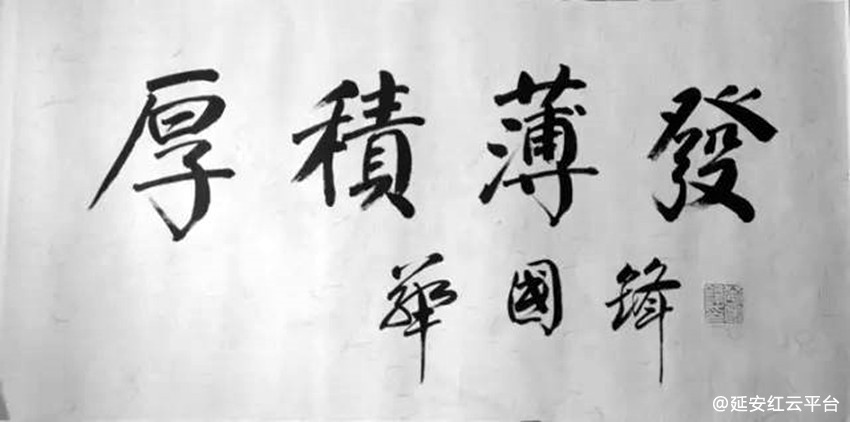 厚積薄發
華國鋒
@延安红云平台